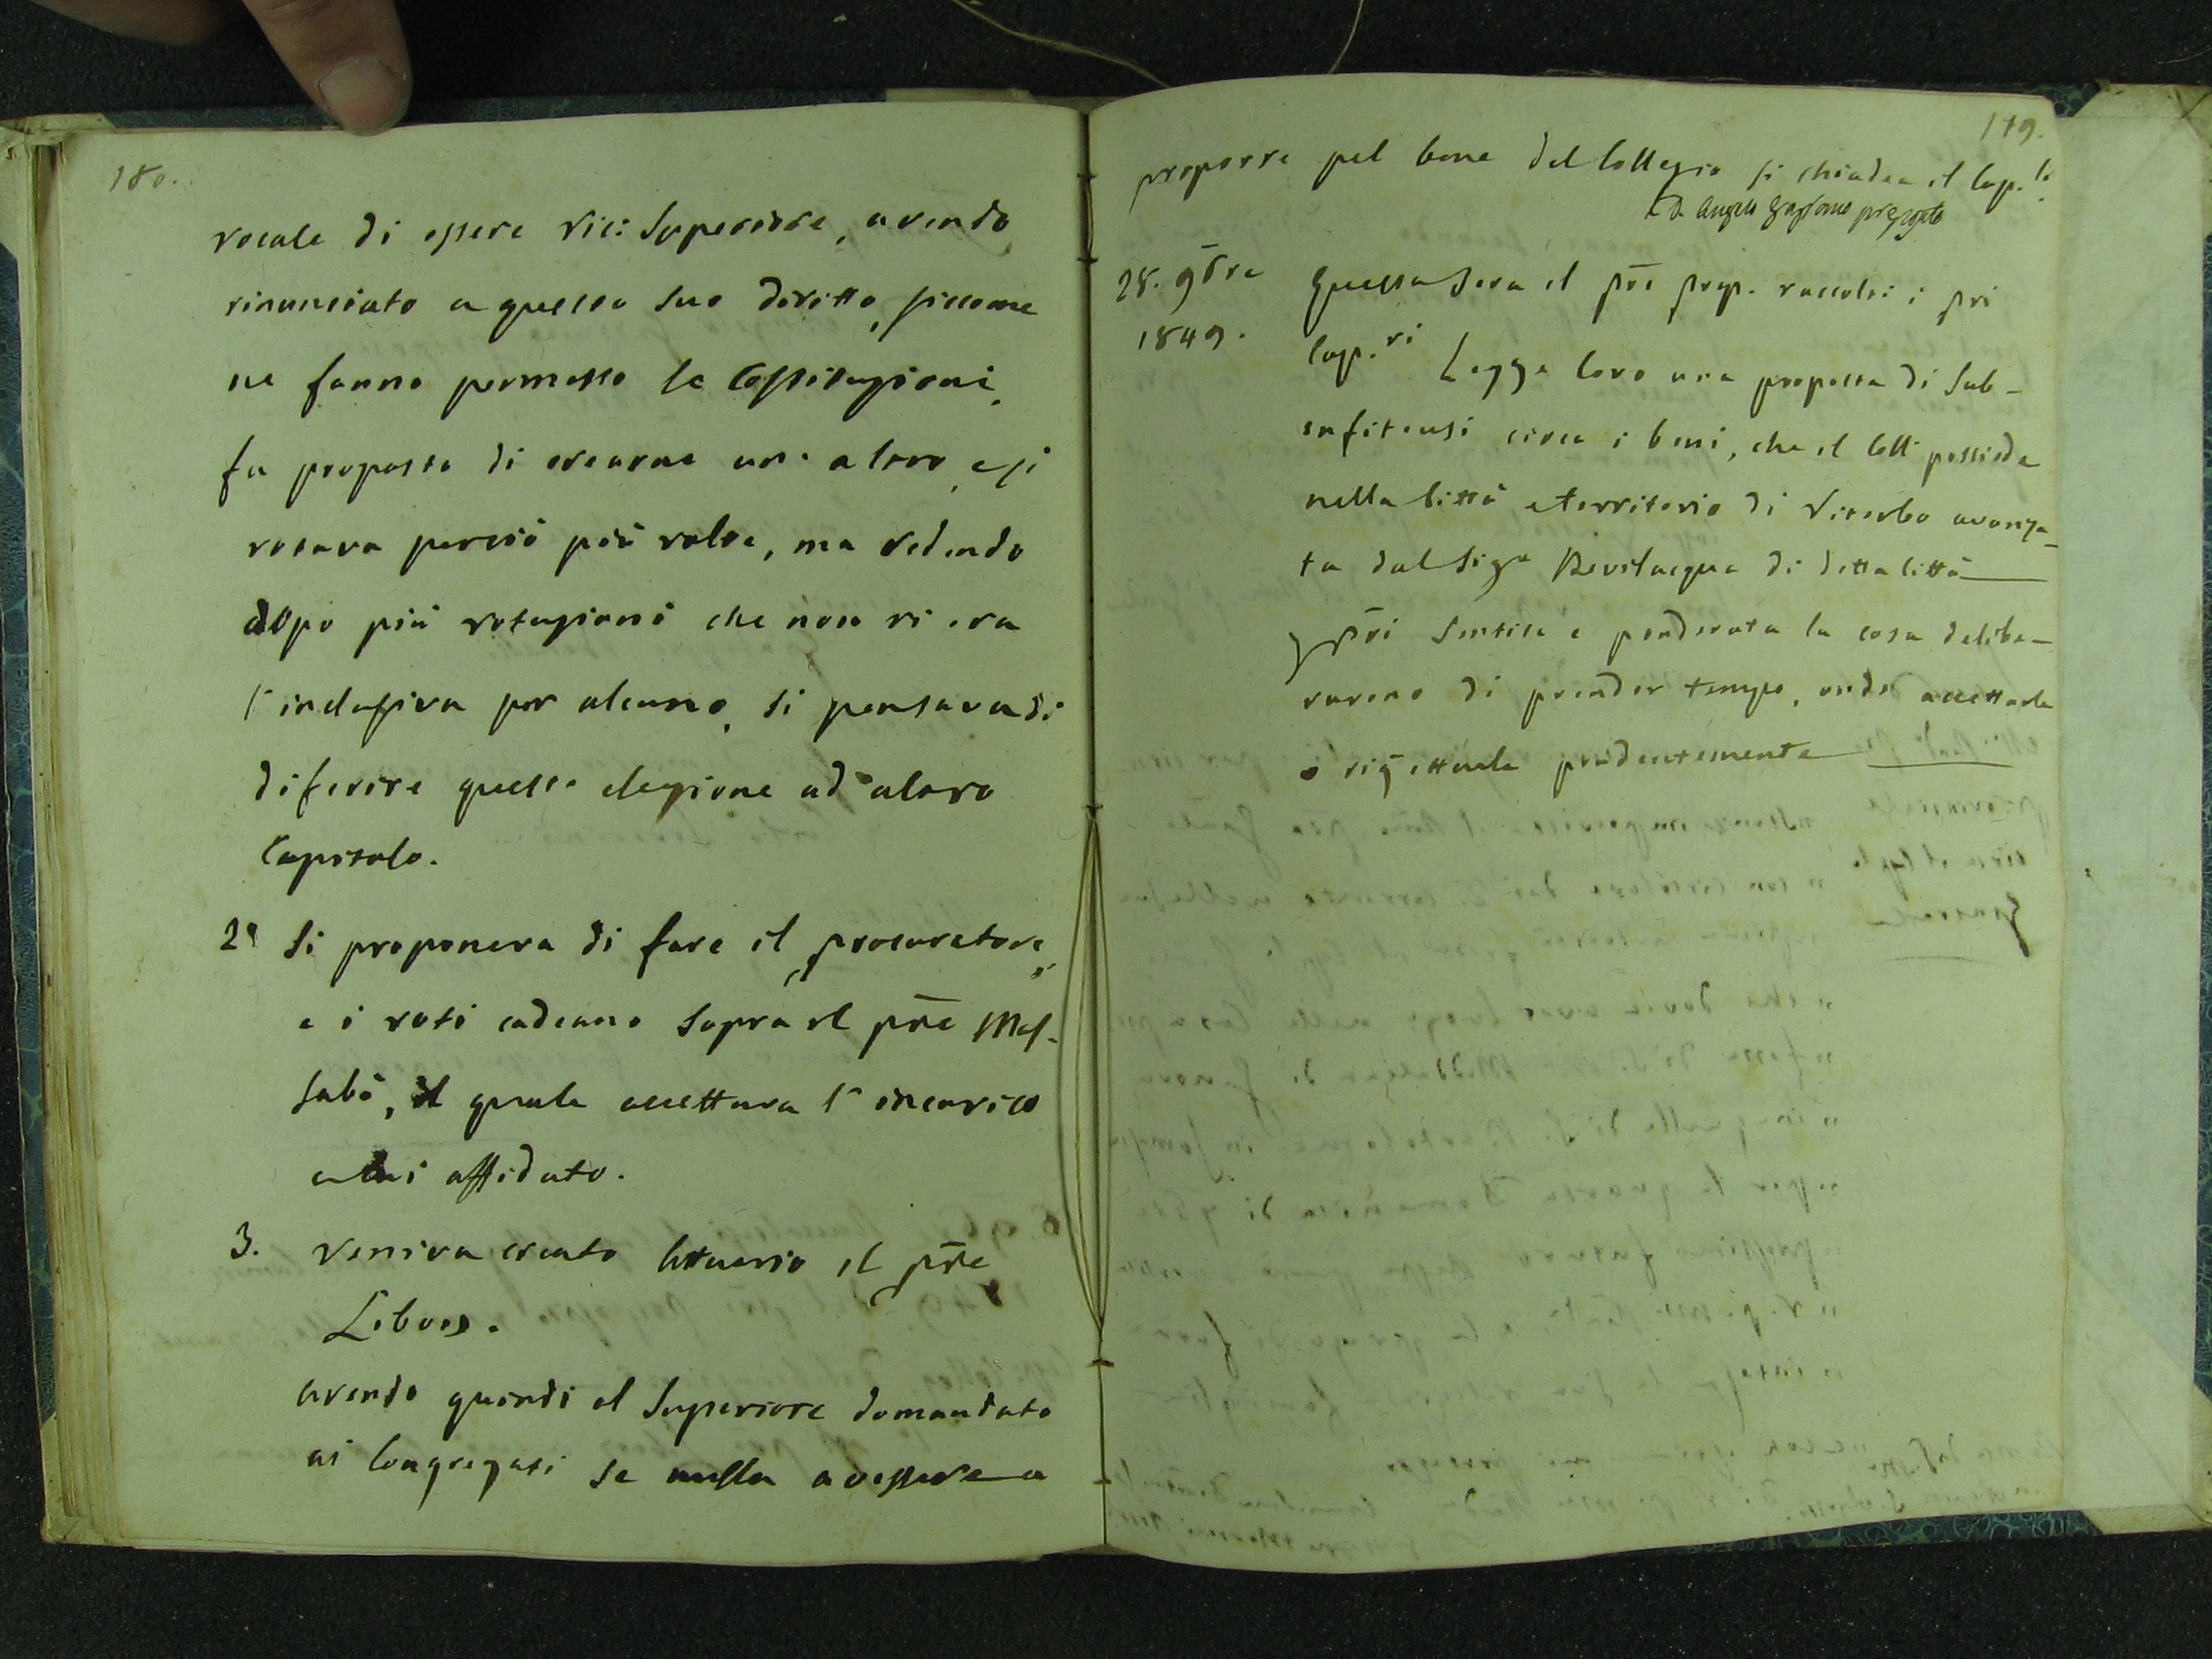 180.
vocale di essere vice Superiore, avendo
rinunciato a questo suo diritto, siccome
ne fanno permesso le Costituzioni,
fu proposto di crearne un altro, e si
votava perciò più volte, ma vedendo
dopo più votazioni che non vi era
l'inclusiva per alcuno, si pensava di
diferire questa elezione ad altro
Capitolo.
2° Si proponeva di fare il procuratore,
e i voti cadeano sopra il pre Mas-
sabò, il quale accettava l'incarico
a lui affidato.
3. Veniva creato Attuario il pre
Libois.
Avendo quindi il Superiore domandato
ai Congregati se nulla avessero a
179.
proporre pel bene del Collegio si chiudea il Cap.lo
D. Angelo preposto
28. 9bre
1849.
Questa sera il pre prep. raccolti i pri
Cap.ri Legge loro una proposta di Sub-
enfiteusi circa i beni, che il Coll possiede
nella Città e territorio di Viterbo avanza-
ta dal Sigr Bevilacqua di detta Città
pri sentita e ponderata la cosa delibe-
rarono di prender tempo, onde accettarla
o rigettarla prudentemente